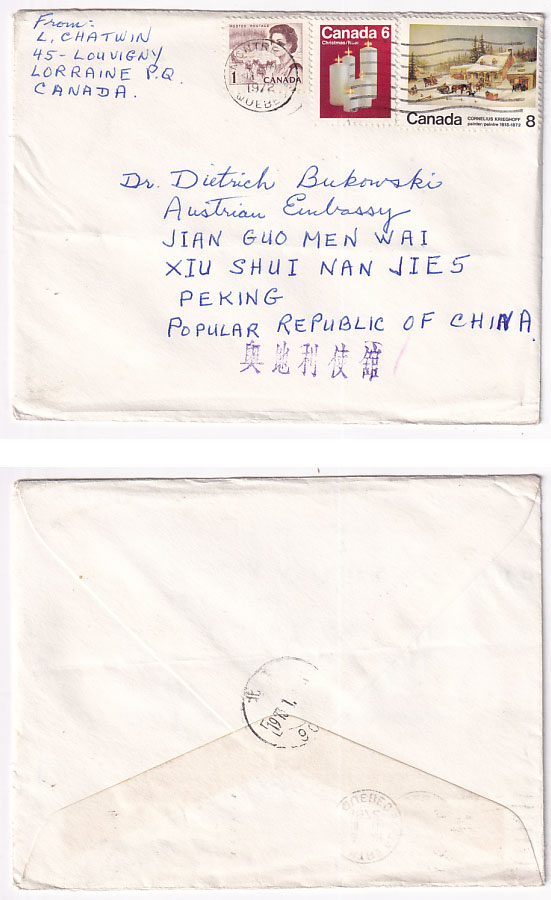 From:
L. CHATWIN
45 - LOUVIGNY
LORRAINE P.Q.
CANADA.
POSTES · POSTAGE
1 CANADA
MONTREAL
1972
QUEBEC
Canada 6
Christmas/Noël
Canada
CORNELIUS KRIEGHOFF
painter/peintre 1815-1872
8
Dr. Dietrich Bukowski
Austrian Embassy
JIAN GUO MEN WAI
XIU SHUI NAN JIE 5
PEKING
POPULAR REPUBLIC OF CHINA
奥地利使館
北
QUEBEC